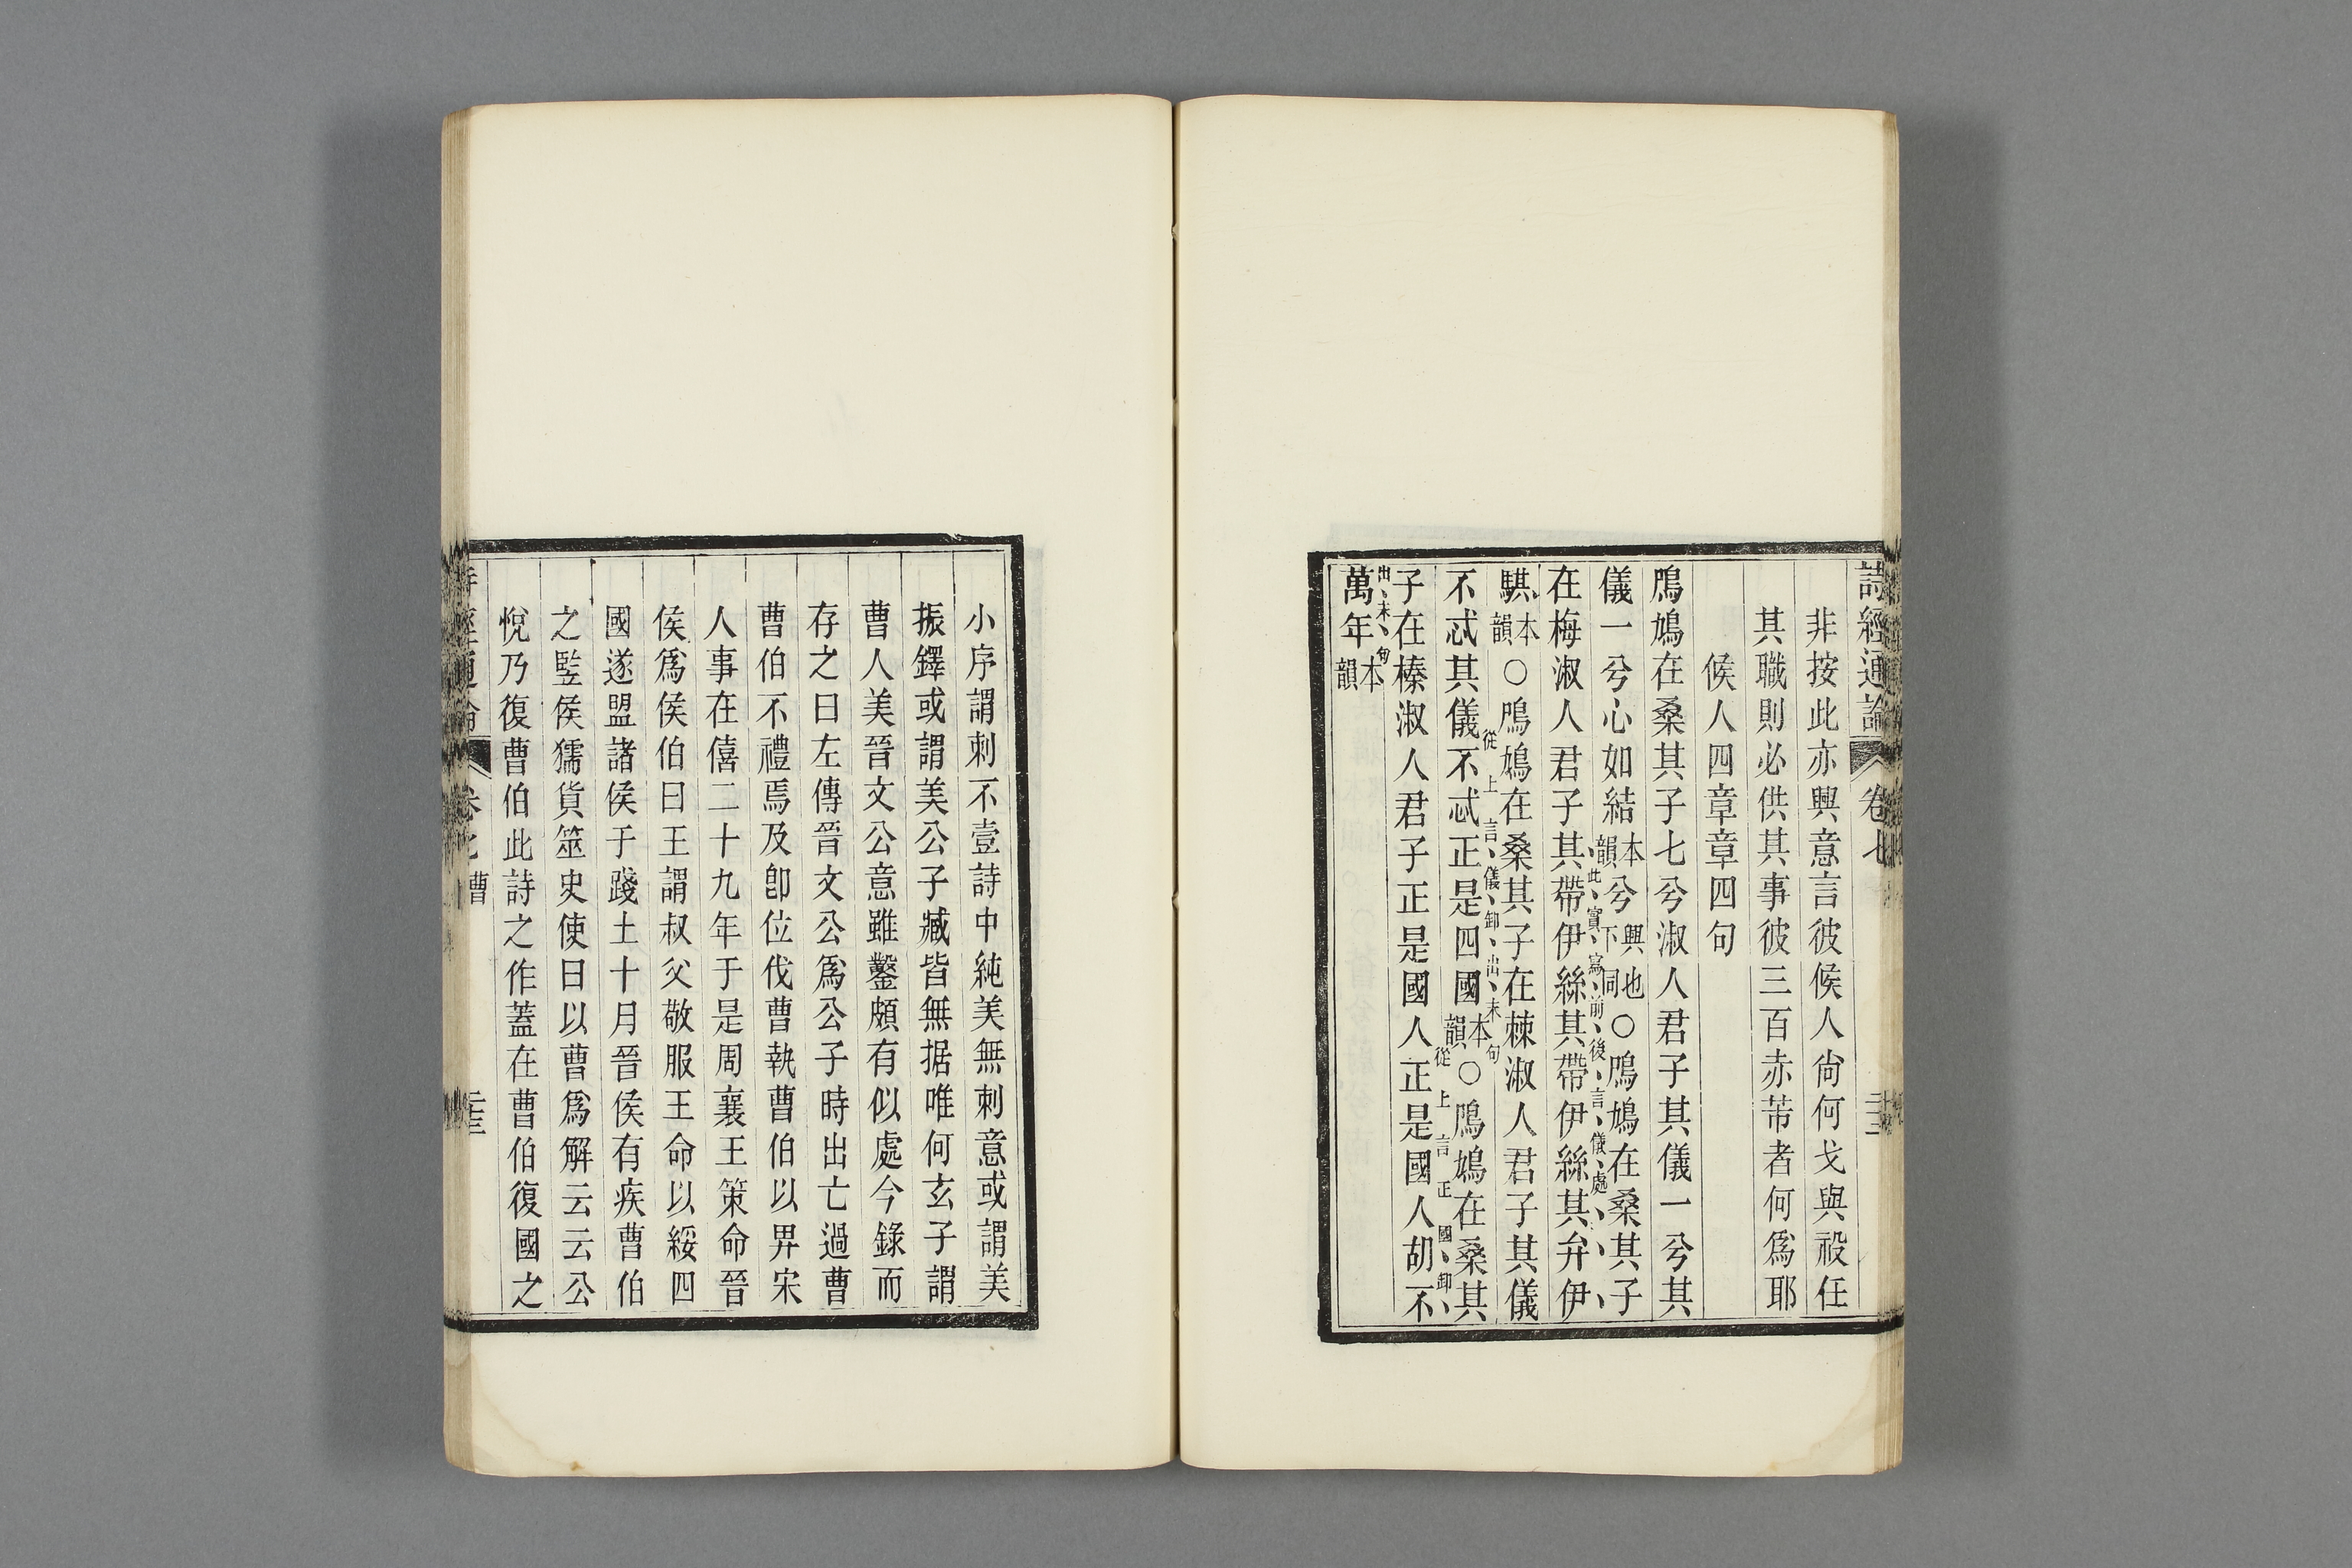 詩經通論 卷七
非按此亦興意言彼候人尙何戈與祋任
其職則必供其事彼三百赤芾者何爲耶
候人四章章四句
鳲鳩在桑其子七兮淑人君子其儀一兮其
儀一兮心如結本韻兮興也下同○鳲鳩在桑其子
此實寫前後言儀處
在梅淑人君子其帶伊絲其帶伊絲其弁伊
騏本韻○鳲鳩在桑其子在棘淑人君子其儀
從上言儀卸出末句
不忒其儀不忒正是四國本韻○鳲鳩在桑其
從上言正國卸
子在榛淑人君子正是國人正是國人胡不
出末句
萬年本韻
小序謂刺不壹詩中純美無刺意或謂美
振鐸或謂美公子臧皆無据唯何玄子謂
曹人美晉文公意雖鑿頗有似處今錄而
存之曰左傳晉文公爲公子時出亡過曹
曹伯不禮焉及卽位伐曹執曹伯以畀宋
人事在僖二十九年于是周襄王策命晉
侯爲侯伯曰王謂叔父敬服王命以綏四
國遂盟諸侯于踐土十月晉侯有疾曹伯
之豎侯獳貨筮史使曰以曹爲解云云公
悅乃復曹伯此詩之作蓋在曹伯復國之
經通論 曹